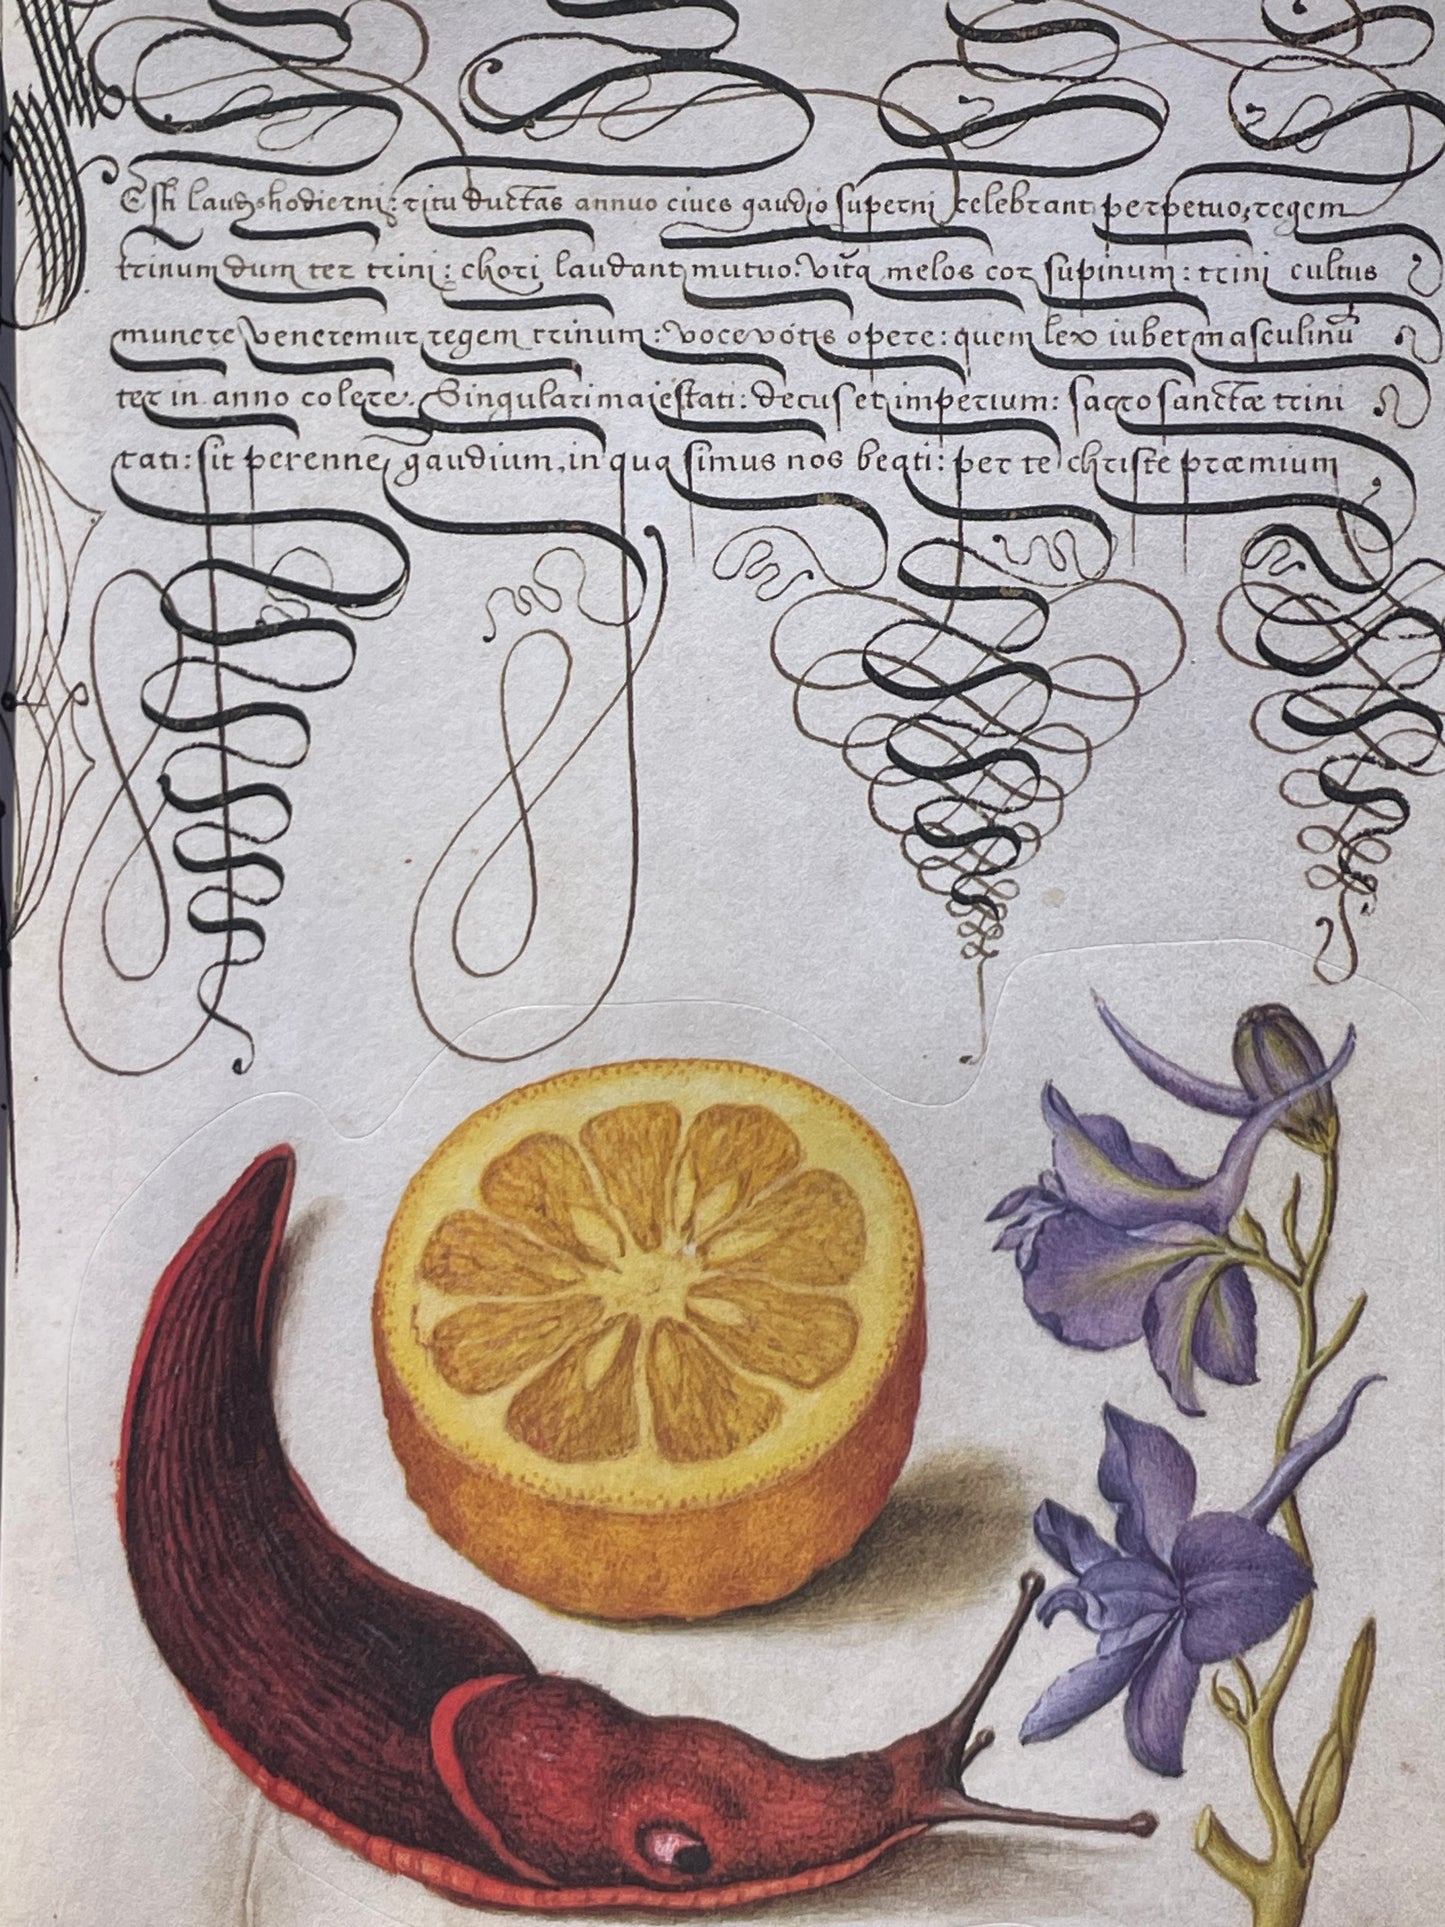 Est laudis hodierni: ritu ductas annuo cives gaudio superni celebrant perpetuo, regem
trinum dum ter trini: chori laudant mutuo. vita melos cor supinum: trini cultus
munere veneremur regem trinum: voce votis opere: quem lex iubet masculinū
ter in anno colere. Singulari maiestati: decus et imperium: sacrosanctæ trini
tati: sit perenne gaudium, in qua simus nos beati: per te christe præmium